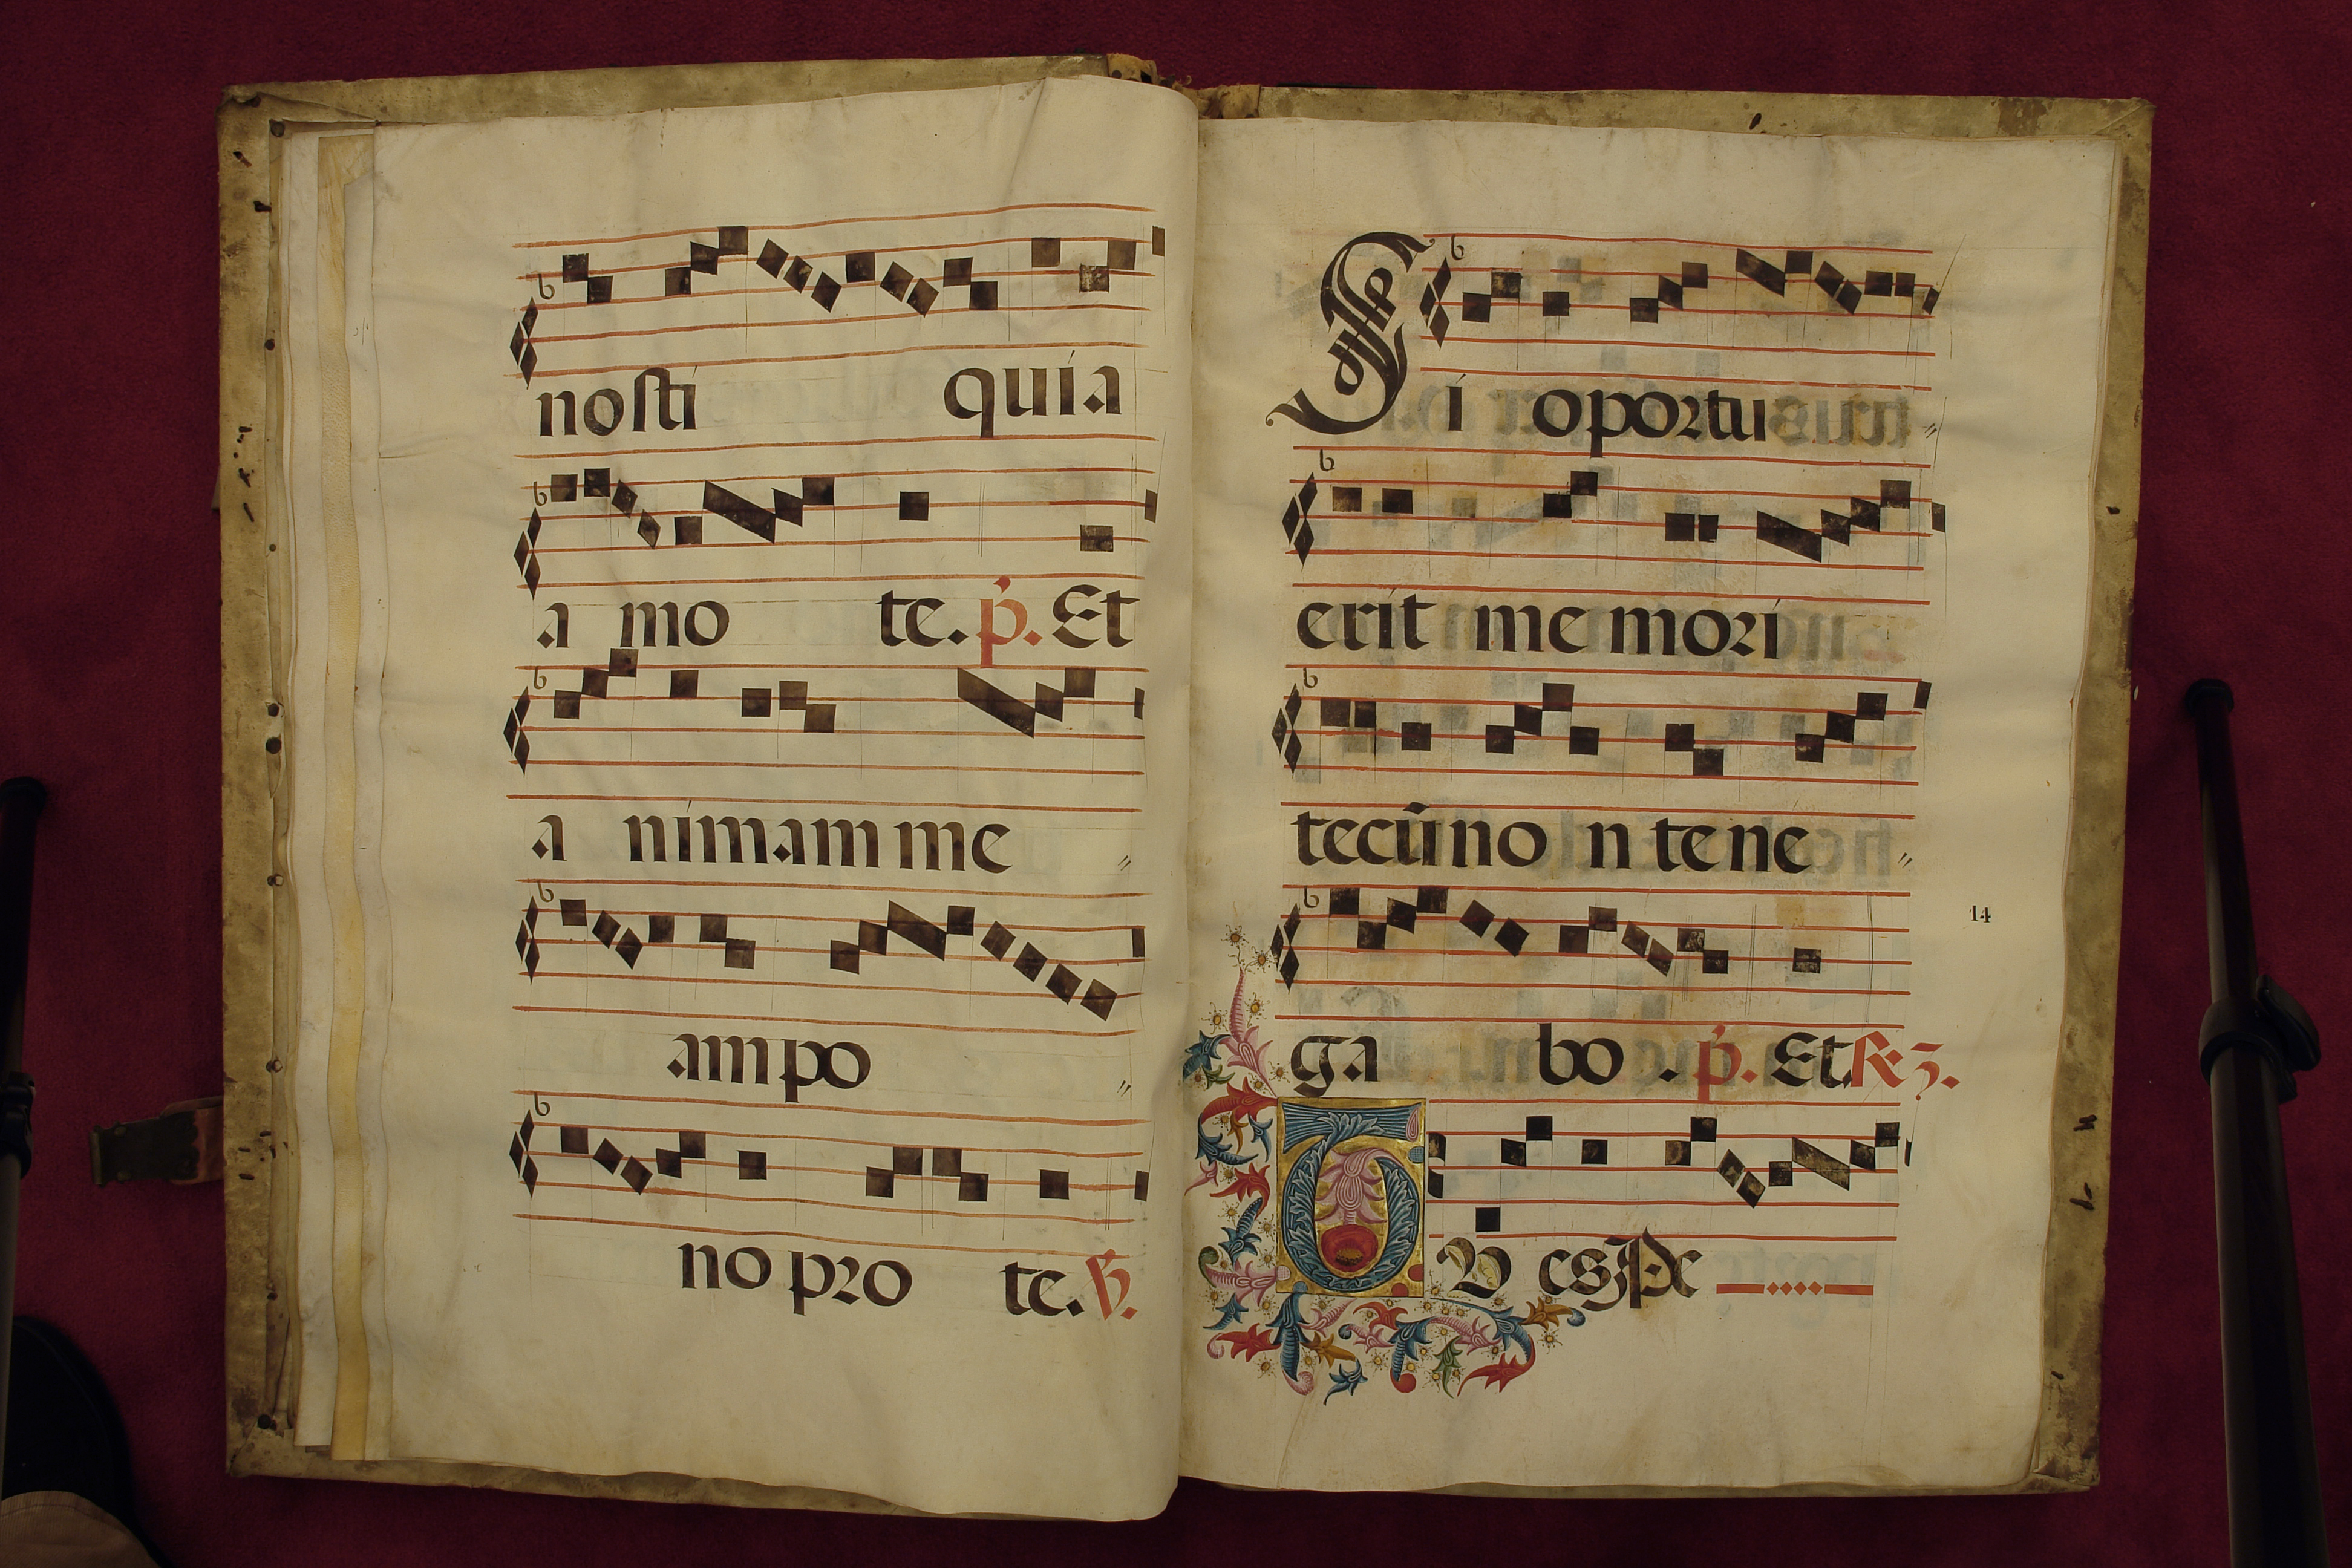 nosti quia
a mo te. p. Et
a nimam me
am po
no pro te. V.
Si oportu
erit me mori
tecū no n te ne
ga bo . p. Et. R. 3.
14
O V es Pe